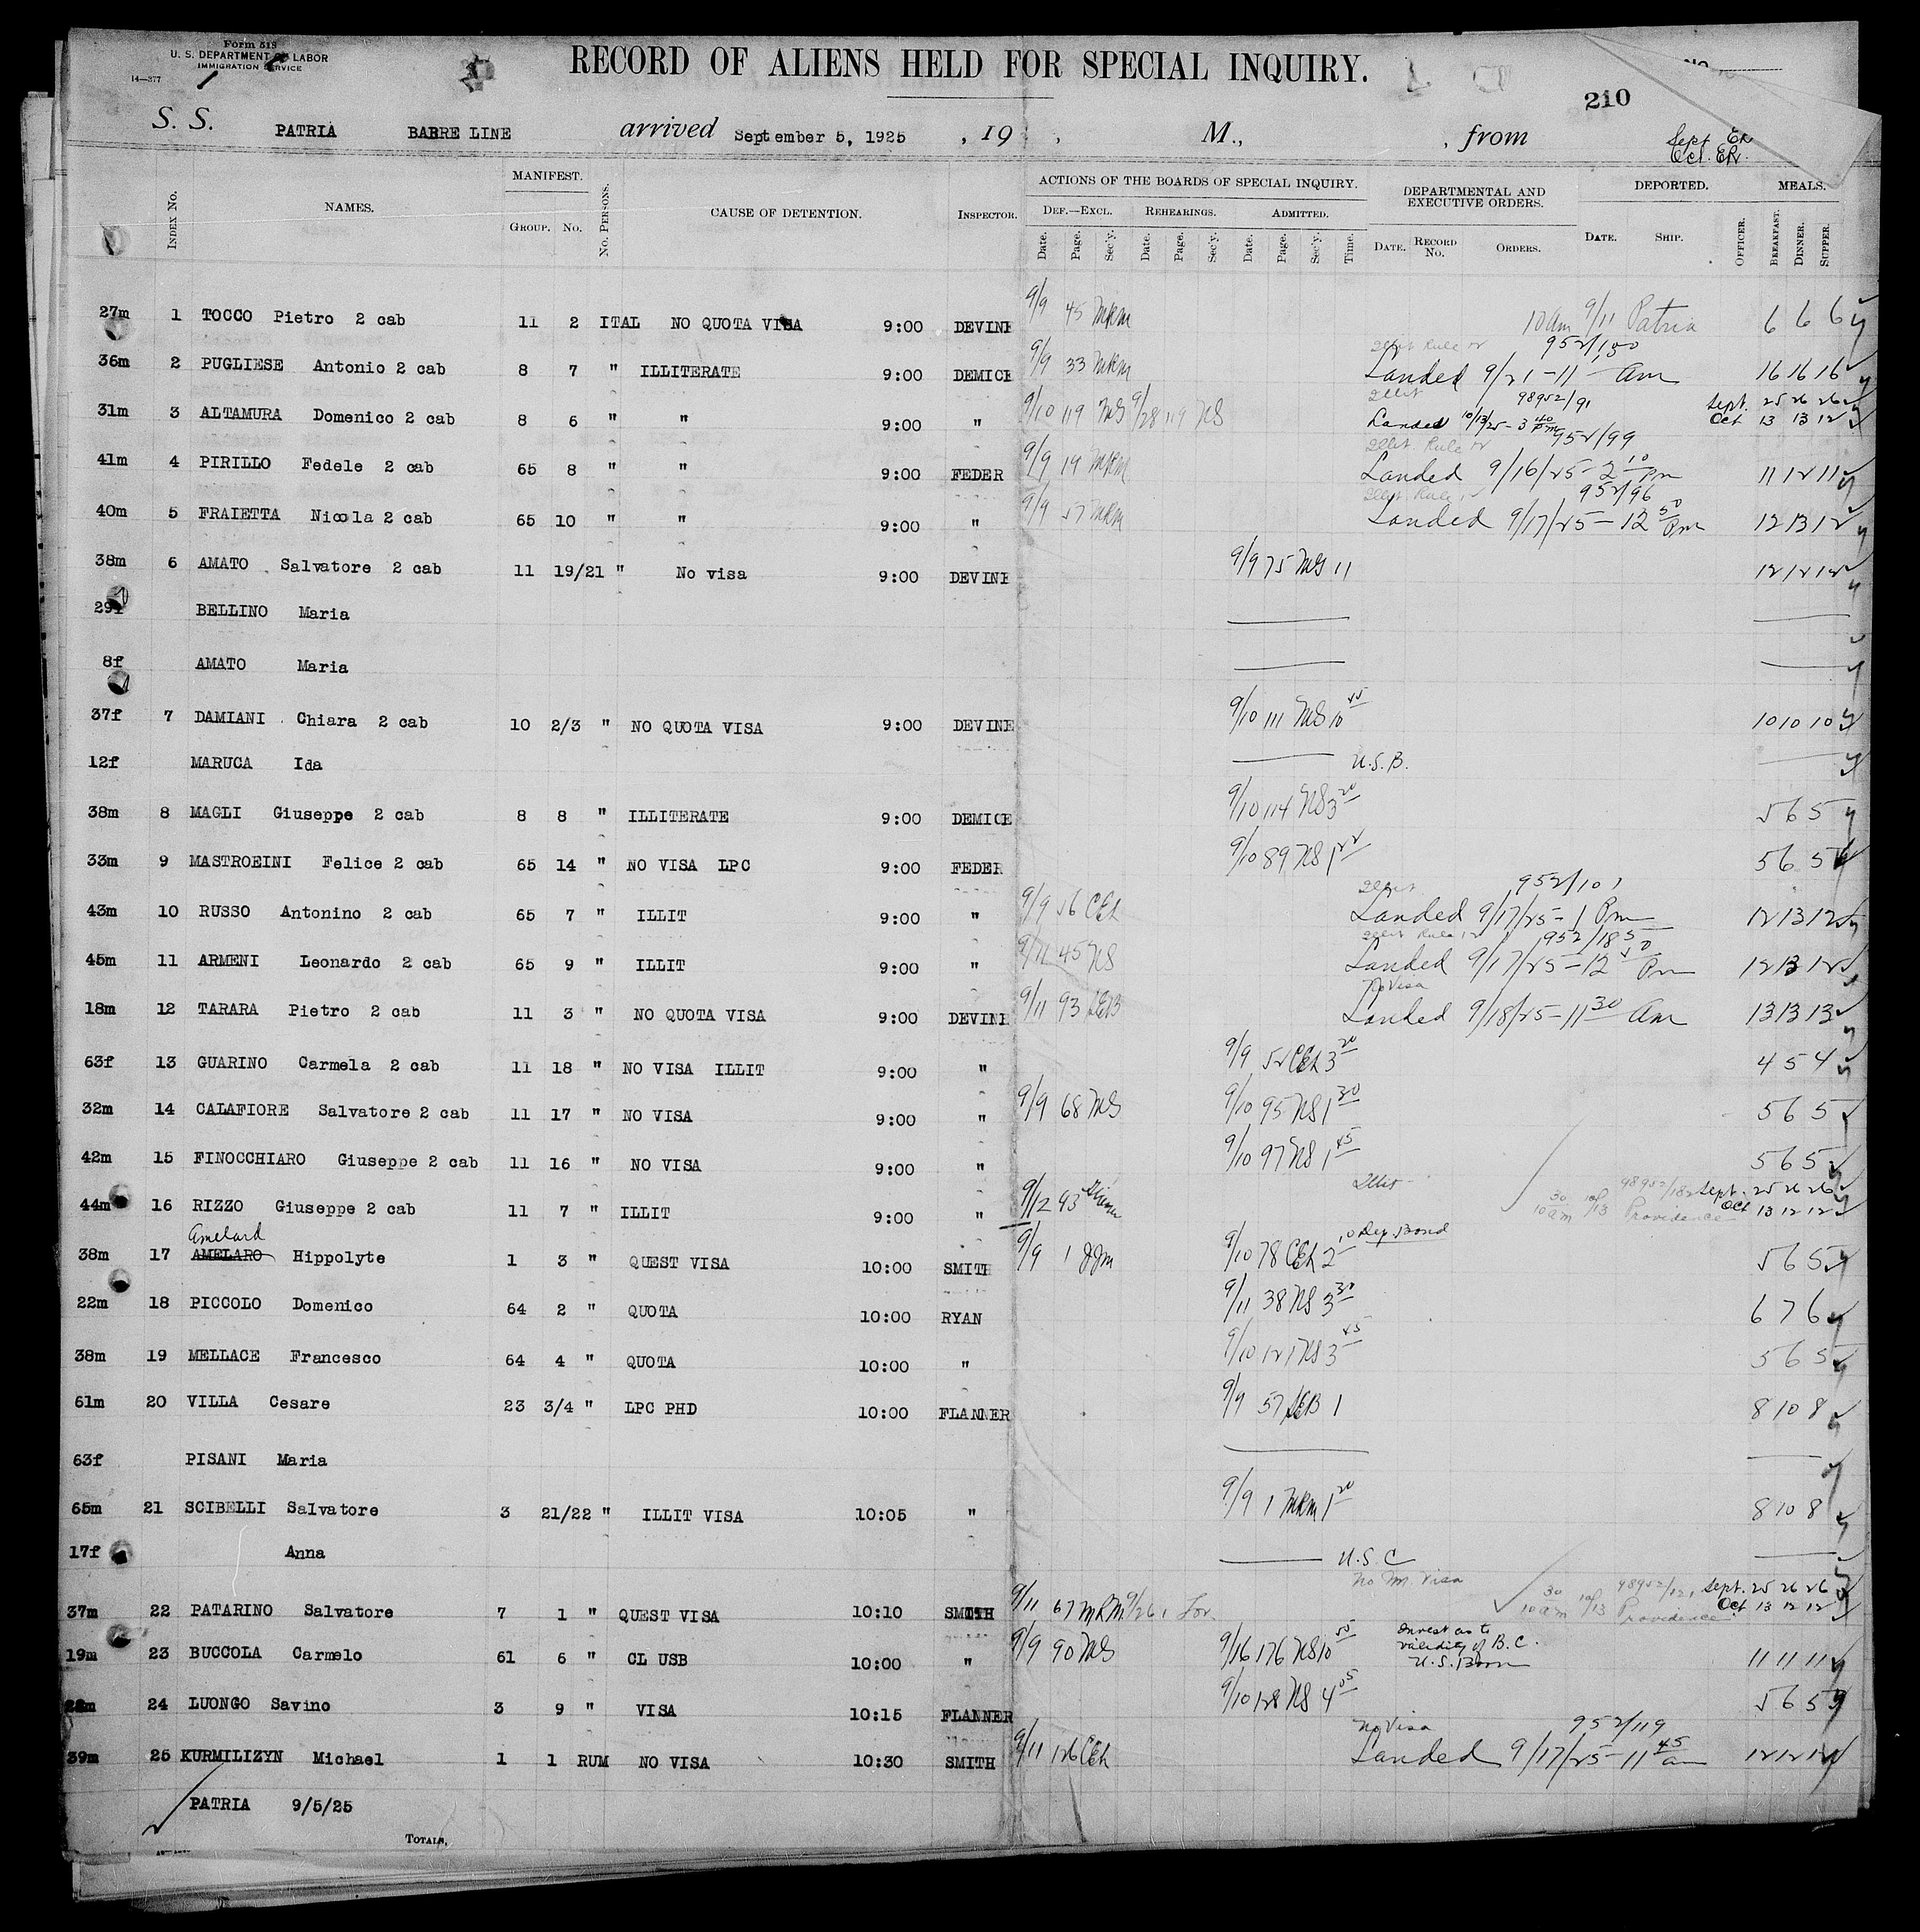 Form 518
U. S. DEPARTMENT OF LABOR
IMMIGRATION SERVICE
14—377
RECORD OF ALIENS HELD FOR SPECIAL INQUIRY.
210
S. S. PATRIA BABRE LINE arrived September 5, 1925 , 19 , M., , from
Sept ER
Oct. ER.
INDEX NO. NAMES. MANIFEST. GROUP. NO. NO. PERSONS. CAUSE OF DETENTION. INSPECTOR. ACTIONS OF THE BOARDS OF SPECIAL INQUIRY. DEF.—EXCL. REHEARINGS. ADMITTED. DEPARTMENTAL AND EXECUTIVE ORDERS. DEPORTED. MEALS.
Date. Page. Sec'y. Date. Page. Sec'y. Date. Page. Sec'y. Time. DATE. RECORD NO. ORDERS. DATE. SHIP. OFFICER. BREAKFAST. DINNER. SUPPER.
27m 1 TOCCO Pietro 2 cab 11 2 ITAL NO QUOTA VISA 9:00 DEVINE 9/9 45 MRM 10 am 9/11 Patria 6 6 6
952/150
36m 2 PUGLIESE Antonio 2 cab 8 7 " ILLITERATE 9:00 DEMICE 9/9 33 MRM Landed 9/21-11 am 16 16 16
98952/91
31m 3 ALTAMURA Domenico 2 cab 8 6 " " 9:00 " 9/10 119 MS 9/28 119 NS Landed 10/13/25-3 40 pm Sept. 25 26 26 Oct 13 13 12
952/99
41m 4 PIRILLO Fedele 2 cab 65 8 " " 9:00 FEDER 9/9 19 MRM Landed 9/16/25-2 10 Pm 11 12 11
952/96
40m 5 FRAIETTA Nicola 2 cab 65 10 " " 9:00 " 9/9 57 MRM Landed 9/17/25-12 50 Pm 12 13 12
38m 6 AMATO Salvatore 2 cab 11 19/21 " No visa 9:00 DEVINE 9/9 75 MS 11 12 12 12
29f BELLINO Maria
8f AMATO Maria
37f 7 DAMIANI Chiara 2 cab 10 2/3 " NO QUOTA VISA 9:00 DEVINE 9/10 111 MS 10 45 10 10 10
12f MARUCA Ida U.S.B.
38m 8 MAGLI Giuseppe 2 cab 8 8 " ILLITERATE 9:00 DEMICE 9/10 114 NS 3 20 5 6 5
33m 9 MASTROEINI Felice 2 cab 65 14 " NO VISA LPC 9:00 FEDER 9/10 89 NS 1 22 5 6 5
Illit 952/101
43m 10 RUSSO Antonino 2 cab 65 7 " ILLIT 9:00 " 9/9 56 CEH Landed 9/17/25-1 Pm 12 13 12
952/185
45m 11 ARMENI Leonardo 2 cab 65 9 " ILLIT 9:00 " 9/11 45 NS Landed 9/17/25-12 50 Pm 12 13 12
No Visa
18m 12 TARARA Pietro 2 cab 11 3 " NO QUOTA VISA 9:00 DEVINE 9/11 93 LEB Landed 9/18/25-11 30 am 13 13 13
63f 13 GUARINO Carmela 2 cab 11 18 " NO VISA ILLIT 9:00 " 9/9 52 CEH 3 20 4 5 4
32m 14 CALAFIORE Salvatore 2 cab 11 17 " NO VISA 9:00 " 9/9 68 MS 9/10 95 NS 1 30 5 6 5
42m 15 FINOCCHIARO Giuseppe 2 cab 11 16 " NO VISA 9:00 " 9/10 97 NS 1 45 5 6 5
Illit
44m 16 RIZZO Giuseppe 2 cab 11 7 " ILLIT 9:00 " 9/12 93 10 30 am 10/13 Providence 98952/182 Sept. 25 26 26 Oct 13 12 12
Amelard
38m 17 AMELARO Hippolyte 1 3 " QUEST VISA 10:00 SMITH 9/9 1 JJM 9/10 78 CEH 2 10 Dep. Bond 5 6 5
22m 18 PICCOLO Domenico 64 2 " QUOTA 10:00 RYAN 9/11 38 NS 3 30 6 7 6
38m 19 MELLACE Francesco 64 4 " QUOTA 10:00 " 9/10 121 NS 3 45 5 6 5
61m 20 VILLA Cesare 23 3/4 " LPC PHD 10:00 FLANNER 9/9 57 LEB 1 8 10 8
63f PISANI Maria
65m 21 SCIBELLI Salvatore 3 21/22 " ILLIT VISA 10:05 " 9/9 1 MRM 1 20 8 10 8
17f Anna U.S.C
No Im. Visa
37m 22 PATARINO Salvatore 7 1 " QUEST VISA 10:10 SMITH 9/11 67 MRM 9/26 1 10 30 am 10/13 Providence 98952/121 Sept. 25 26 26 Oct 13 12 12
19m 23 BUCCOLA Carmelo 61 6 " CL USB 10:00 " 9/9 90 MS 9/16 176 NS 10 50 Invest as to validity of B.C. U.S. Born 11 11 11
22m 24 LUONGO Savino 3 9 " VISA 10:15 FLANNER 9/10 128 NS 4 05 5 6 5
No Visa 952/119
39m 25 KURMILIZYN Michael 1 1 RUM NO VISA 10:30 SMITH 9/11 126 CEH Landed 9/17/25-11 45 am 12 12 12
PATRIA 9/5/25
TOTALS,